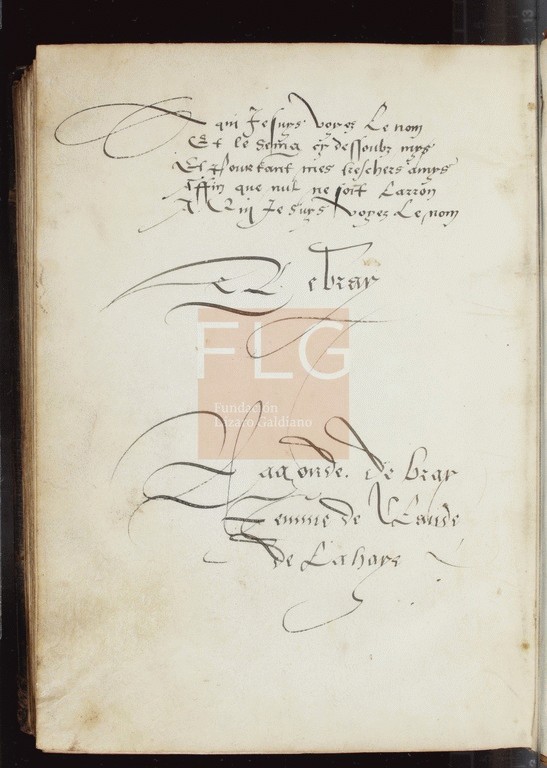 A qui Je suys voyez Le nom
Et le seing cy dessoubz mys
Et pourtant mes treschers amys
Affin que nul ne soit Larron
A Qui Je suys voyez Le nom
De bray
FLG
Fundación
Lázaro Galdiano
de bray
Femme de Claude
de Lahaye